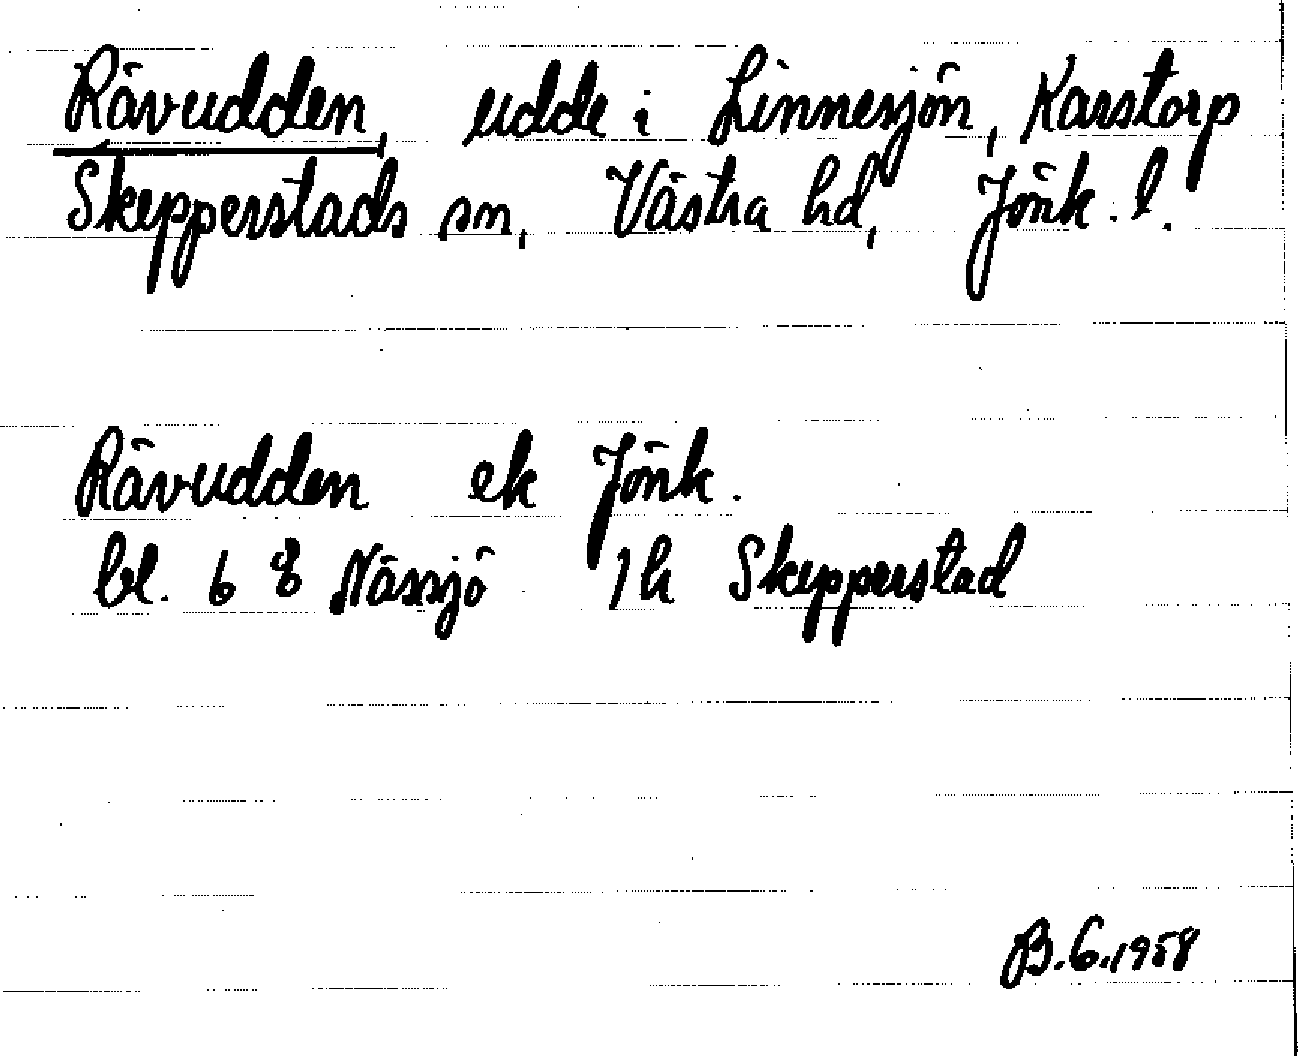 Rävudden, udde i Linnesjön, Karstorp
Skepperstads sn, Västra hd, Jönk. l.
Rävudden ek Jönk.
bl. 6 8 Nässjö 1h Skepperstad
B.G.1958